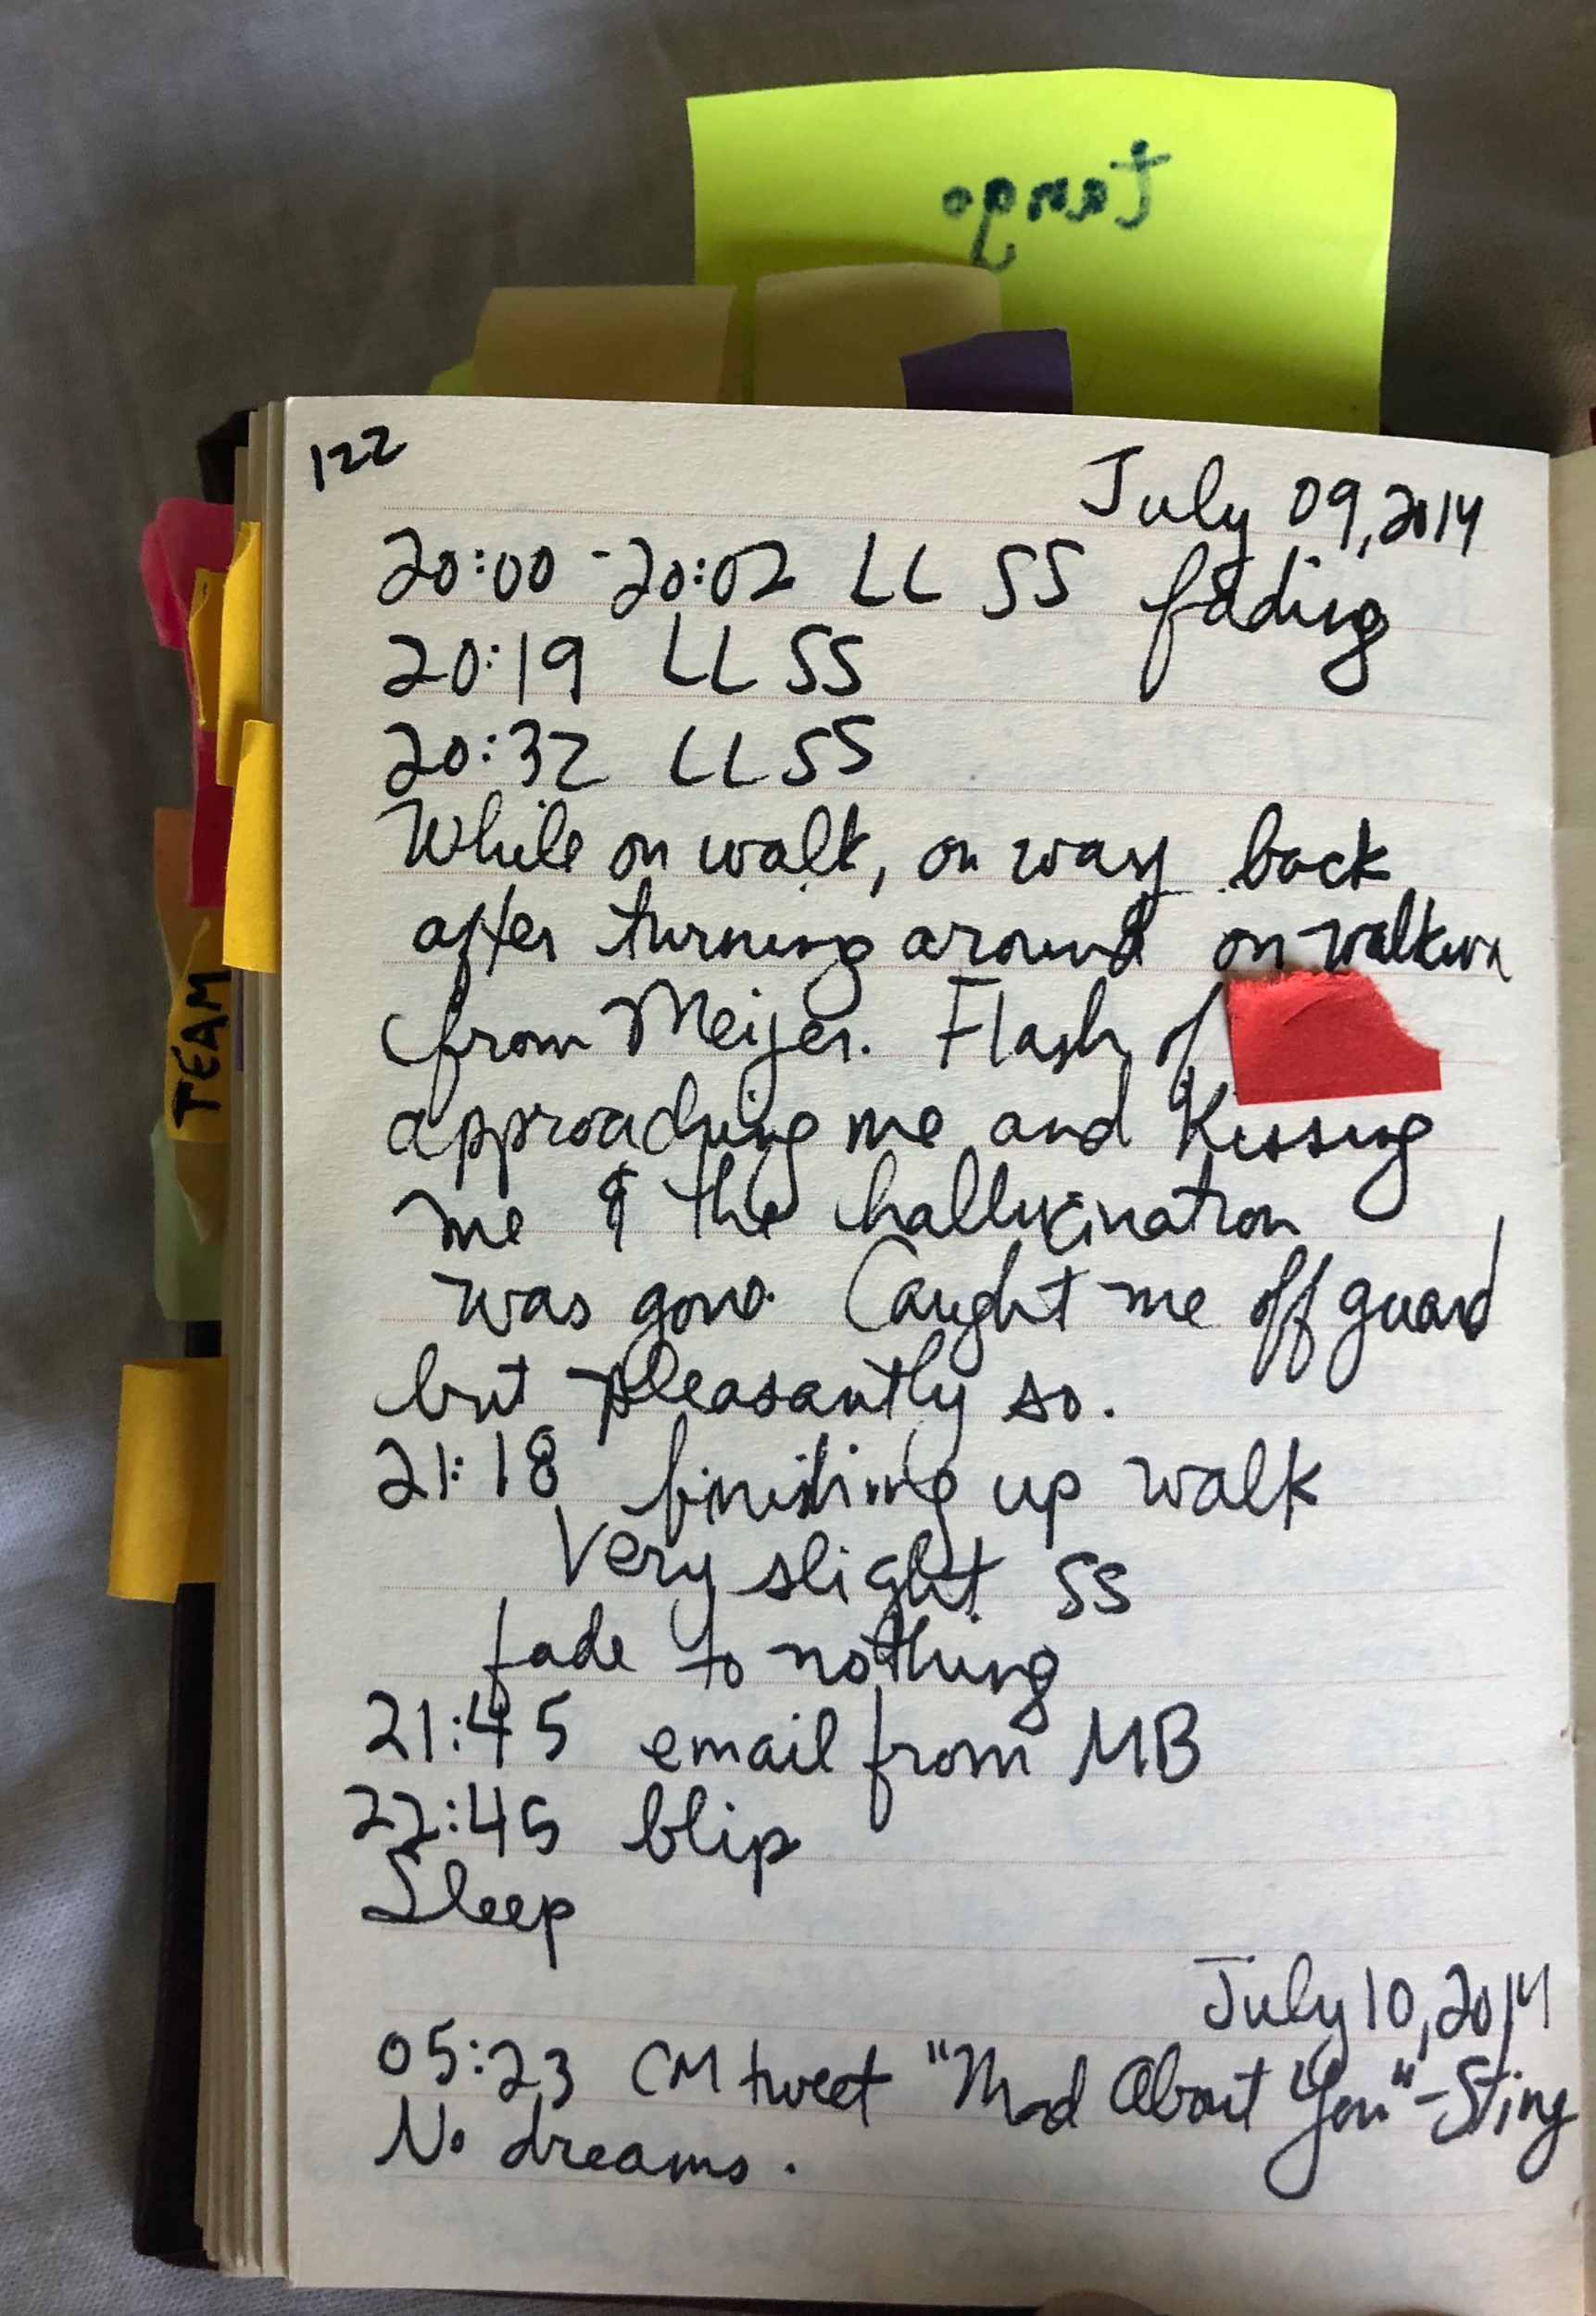 122
July 09, 2014
20:00 - 20:02 LL SS fading
20:19 LL SS
20:32 LL SS
While on walk, on way back
after turning around on
from Meijer. Flash of
approaching me and kissing
me & the hallucination
was gone. Caught me off guard
but pleasantly so.
21:18 finishing up walk
Very slight SS
fade to nothing
21:45 email from MB
22:45 blip
Sleep
July 10, 2014
05:23 CM tweet "Mad About You" - Sting
No dreams.
TEAM